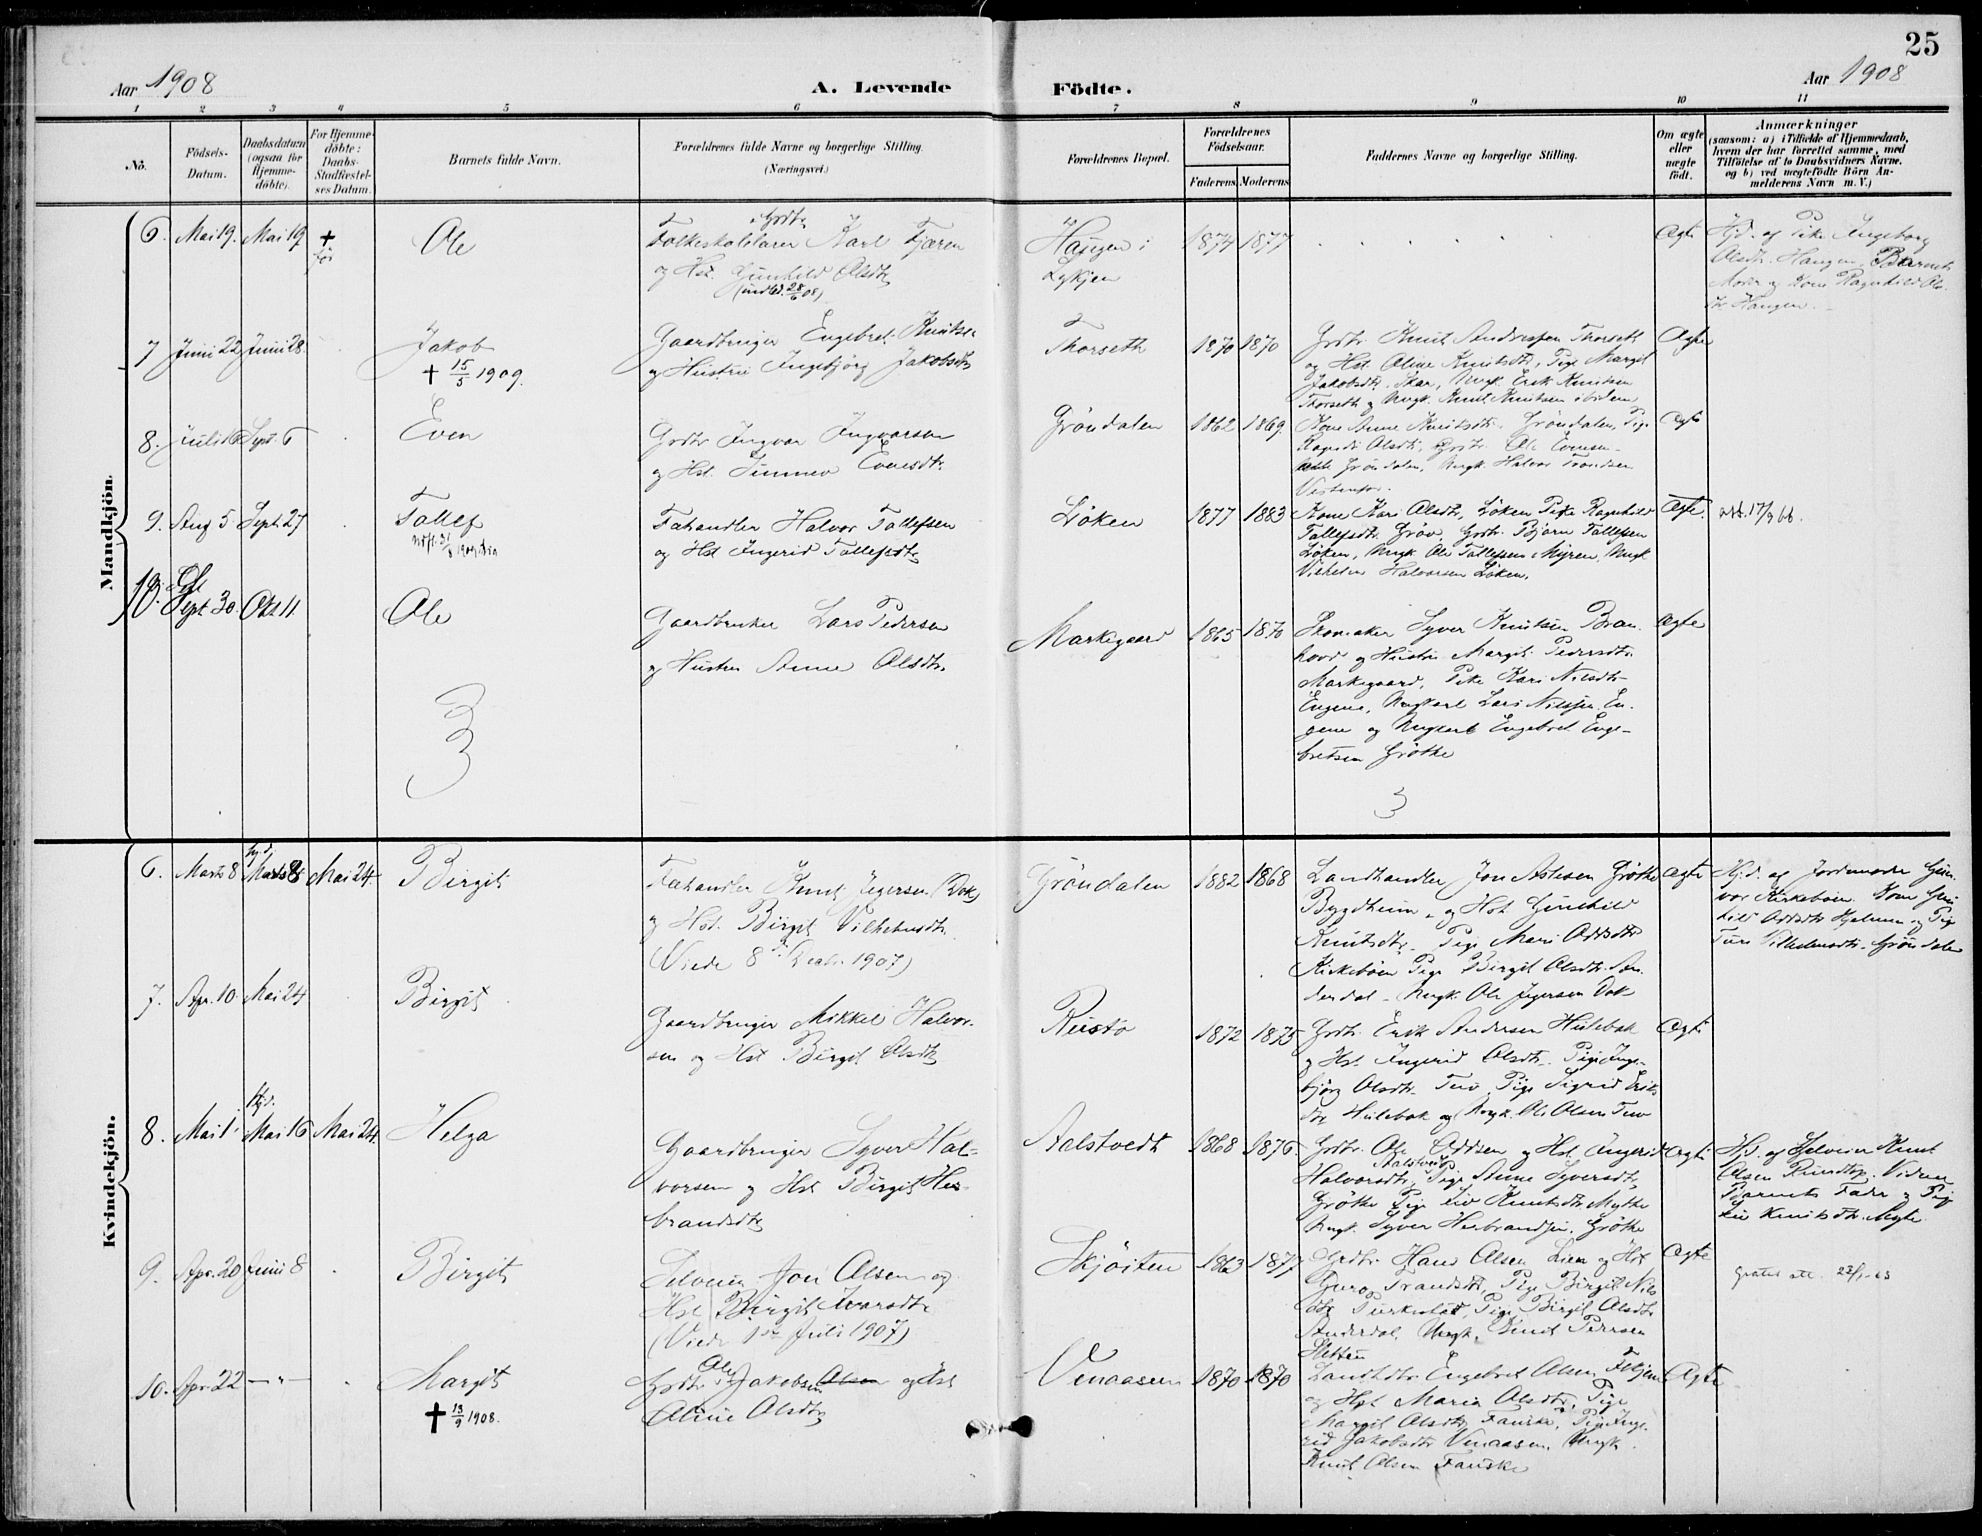 25
Aar 1908
A. Levende
Födte.
Aar 1908
1 2 3 4 5 6 7 8 9 10 11
No.
Födsels-
Datum.
Daabsdatum
(ogsaa for
Hjemme-
döbte).
For Hjemme-
döbte:
Daabs-
Stadfæstel-
ses Datum.
Barnets fulde Navn.
Forældrenes fulde Navne og borgerlige Stilling.
(Næringsvei.)
Forældrenes Bopæl.
Forældrenes
Födselsaar.
Faderens. Moderens.
Faddernes Navne og borgerlige Stilling.
Om ægte
eller
uægte
født.
Anmærkninger
(saasom: a) i Tilfælde af Hjemmedaab,
hvem der har forrettet samme, med
Tilföielse af to Daabsvidners Navne.
og b) ved uægtefödte Börn An-
melderens Navn m. V.)
Mandkjön.
6. Mai 19. Mai 19 † før
Ole
Folkeskolelærer Karl Fjæren
og Hst. Gunhild Olsdtr
(indt. 28/6 08)
Haugen i
Lykjen
1874 1877
Ægte
Hjd. af Pike Ingeborg
Olsdtr. Haugen, Barnets
Moder og Kone Ragnhild Ols-
dtr Haugen.
7 Juni 22 Juni 28.
Jakob
† 15/5 1909.
Gaardbruger Engebret Knutse
og Hustru Ingebjörg Jakobsdtr
Thorseth
1870 1870
Grdbr. Knut Andersen Thorseth
og Hst. Oline Knutsdtr, Pige Margit
Jakobsdtr. Skar, Ungk. Erik Knutsen
Thorseth og Ungk. Knut Knutsen ibidem
Ægte
8. Juli 16 Sept. 6
Even
Grdbr Ingvar Ingvarsen
og Hst. Evensdtr.
Gröndalen
1862 1869.
Kone Anne Knutsdtr. Gröndalen, Pige
Olsdtr, Grdbr. Ole Evensen
Gröndalen, Ungk. Halvor Trondsen
Ægte
9. Aug 5 Sept. 27
Tollef
Fæhandler Halvor Tollefsen
og Hst Ingerid Tollefsdtr
Löken
1877 1883
Kone Kari Olsdtr, Löken, Pike Ragnhild
Tollefsdtr. Gröv, Grdbr. Björn Tollefsen
Löken, Ungk Ole Tollefsen Myren, Ungk
Vilhelm Halvorsen Löken.
Ægte.
att. 17/9 66.
10. Sept. 30. Okt 11
Ole
Gaardbruker Lars Pedersen
og Hustru Anne Olsdtr.
Markegaard
1865 1870
Skomaker Syver Knutsen Bran-
hovd og Hustru Margit Pedersdtr.
Markegaard, Pike Kari Nilsdtr
Engene, Ungkarl Lars Nilssen En-
gene og Ungkarl Engebret Enge-
bretsen Gröthe
Ægte
3
3
3
Kvindekjön.
6. Marts 8 hjd. Marts 8 Mai 24.
Birgit
Fæhandler Knut Jegersen (Dok)
og Hst. Birgit Vilhelmsdtr.
(Viede 8de Decbr. 1907)
Gröndalen
1882 1868
Landhandler Jon Aslesen Gröthe
Bygdheim, og Hst Gunhild
Knutsdtr. Pige Mari Oddsdtr
Kirkeböen Pige Birgit Olsdtr. An-
derdal - Ungk. Ole Jegersen Dok
Ægte
Hjd. af Jordmoder Gun-
vor Kirkeböen. Kone Gun-
hild Oddsdtr Hjelmen og Pig
Turi Vilhelmsdtr. Gröndalen
7. Apr. 10. Mai 24
Birgit
Gaardbruger Mikkel Halvor-
sen og Hst Birgit Olsdtr
Rustö
1872 1875
Grdbr. Erik Andersen Hulebak
og Hst. Ingerid Olsdtr. Pige Inge-
björg Olsdtr. Tuv, Pige Sigrid Eriks
dtr Hulebak og Ungk. Ole Olsen Tuv
Ægte
8. Mai 1. Hjd. Mai 16 Mai 24.
Helga
Gaardbruger Syver Hal-
vorsen og Hst Birgit Her-
brandsdtr
Aalstvedt
1868 1876.
Grdbr. Ole Oddsen og Hst. Ingerid
Halvorsdtr. Aalstveit, Pige Anne Syversdtr
Gröthe Pige Liv Knutsdtr. Mythe
Ungk. Syver Herbrandsen, Gröthe
Ægte
Hjd. af Selveier Knut
Olsen Rundtop. Vidner
Barnets Fader og Pig
Liv Knutsdtr. Myte
9. Apr. 20 Juni 8
Birgit
Selveier Jon Olsen og
Hst. Birgit Ivarsdtr.
(Viede 1ste Juli 1907)
Skjöiten
1863 1877
Grdbr. Hans Olsen Lien og Hst
Guro Trondsdtr, Pige Birgit Nils
dtr Turkestad, Pige Birgit Olsdtr
Anderdal, Ungk. Knut Persen
Sletten
Ægte
Gratis att. 23/1-63
10. Apr 22 — " —
Margit
† 13/9 1908.
Grdbr Ole Jakobsen Olsen og Hst
Oline Olsdtr
Venaasen
1870 1870
Landhdlr Engebret Olsen Fekjen
og Hst Maria Olsdtr, Pige
Margit Olsdtr Fauske, Pige Inge-
rid Jakobsdtr Venaasen, Ungk.
Knut Olsen Fauske
Ægte